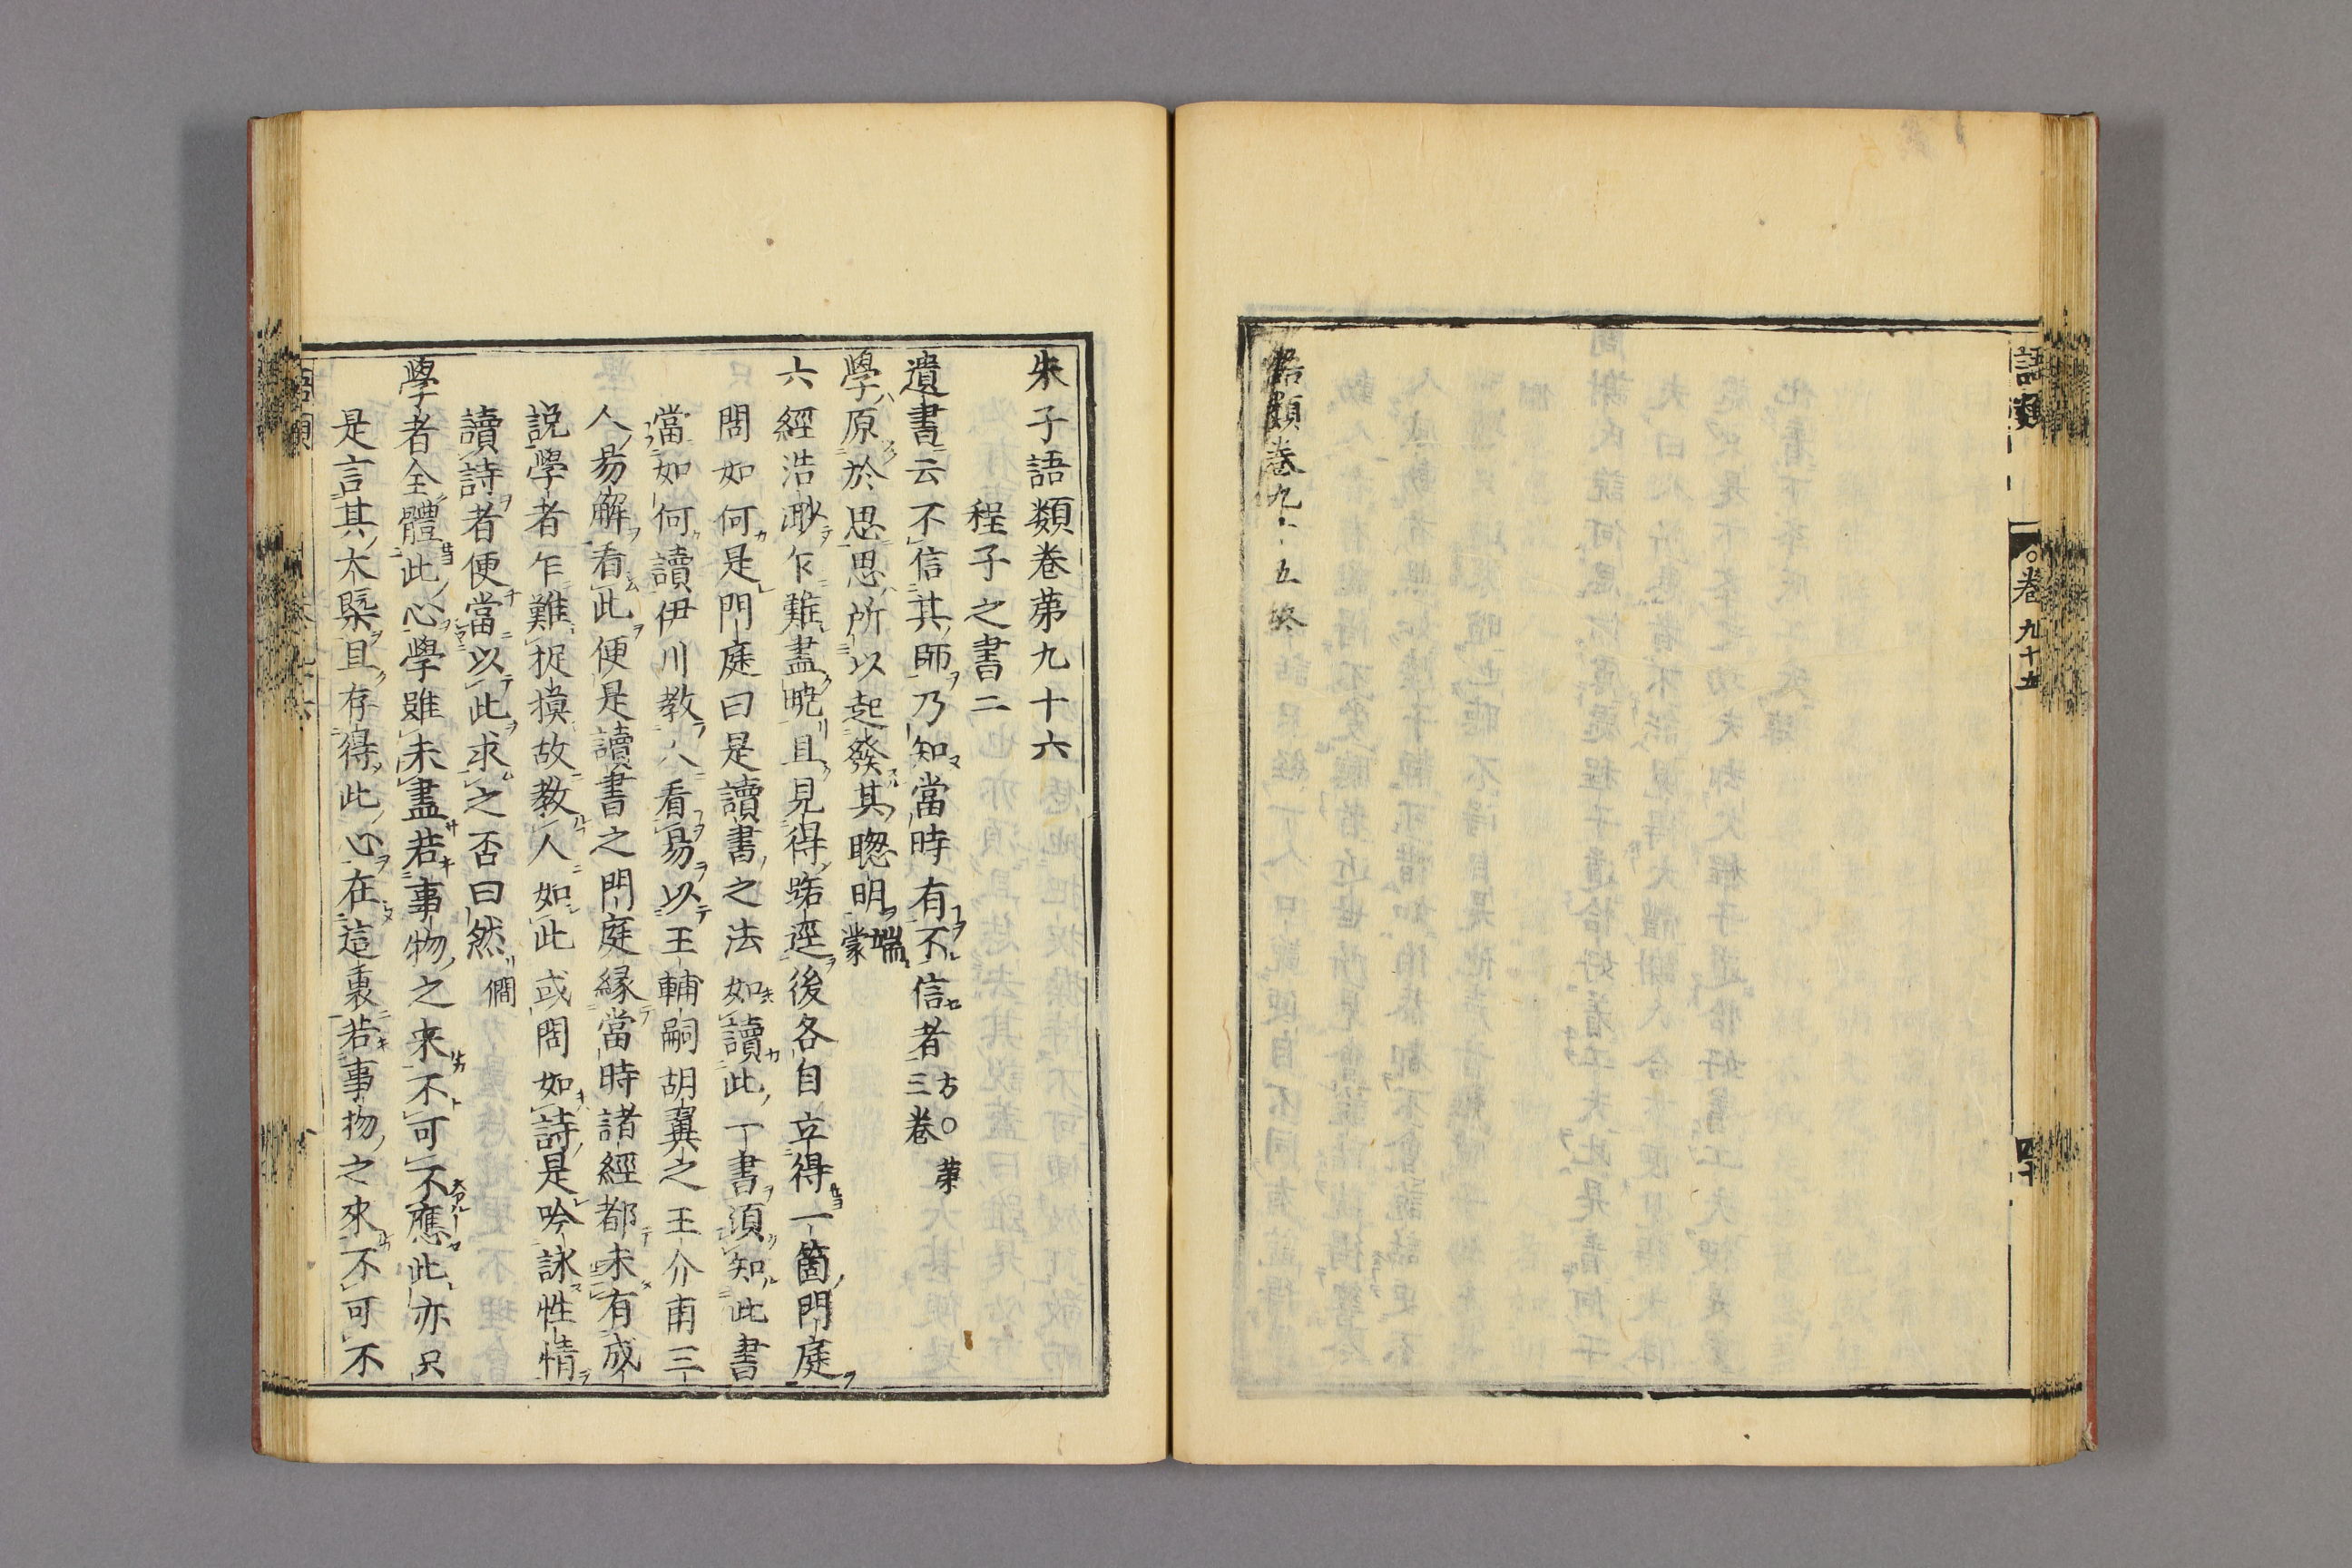 語類
〇卷九十五
四十
語類卷九十五終
朱子語類卷第九十六
程子之書二
遺書云不信其師乃知當時有不信者方〇第三卷
學原於思思所以起發其聰明端蒙
六經浩渺乍難盡曉且見得路逕後各自立得一箇門庭
問如何是門庭曰是讀書之法如讀此一書須知此書
當如何讀伊川教人看易以王輔嗣胡翼之王介甫三
人易解看此便是讀書之門庭緣當時諸經都未有成
說學者乍難捉摸故教人如此或問如詩是吟詠性情
讀詩者便當以此求之否曰然僩
學者全體此心學雖未盡若事物之來不可不應此亦只
是言其大槩且存得此心在這裏若事物之來不可不